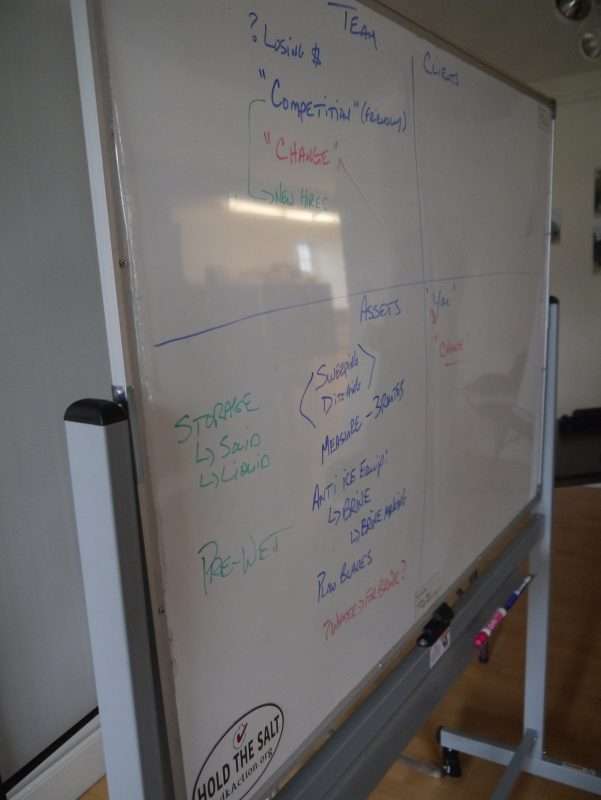 TEAM
? LOSING $
"COMPETITION" (FRIENDLY)
"CHANGE"
↳ NEW HIRES
CLIENTS
ASSETS
STORAGE
↳ SOLID
↳ LIQUID
PRE-WET
SWEEPING
DITCHING
MEASURE - 3 ROUTES
ANTI ICE EQUIP'
↳ BRINE
↳ BRINE MAKING
PLOW BLADES
FOR BRINE?
"YOU"
"CHANGE"
HOLD THE SALT